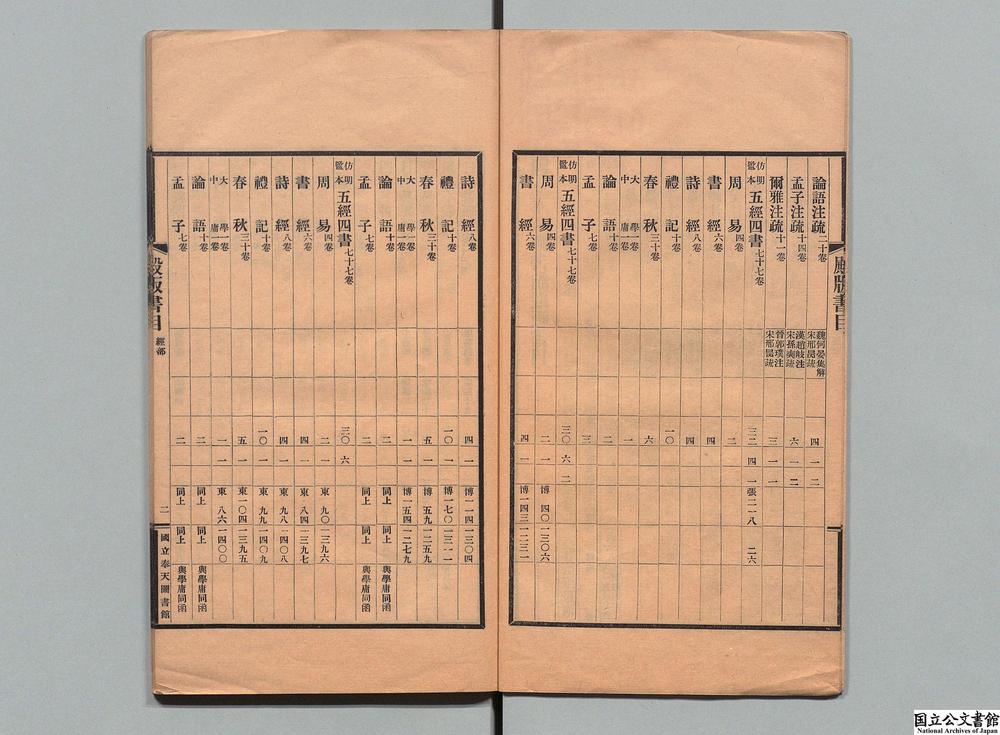 殿版書目
論語注疏 二十卷 魏何晏集解 宋邢昺疏 四 一 二
孟子注疏 十四卷 漢趙岐注 宋孫奭疏 六 一 二
爾雅注疏 十一卷 晉郭璞注 宋邢昺疏 三 一 一
仿明監本 五經四書 七十七卷 三二 四 一 張二一八 二六
周易 四卷 二
書經 六卷 四
詩經 八卷 四
禮記 十卷 一〇
春秋 三十卷 六
大學 一卷 中庸 一卷 一
論語 十卷 二
孟子 七卷 三
仿明監本 五經四書 七十七卷 三〇 六 二
周易 四卷 二 一 博 四〇 一三〇六
書經 六卷 四 一 博一四三 一二三一
詩經 八卷 四 一 博一一四 一三〇四
禮記 十卷 一〇 一 博一七〇 一三一一
春秋 三十卷 五 一 博 五九 一二五九
大學 一卷 中庸 一卷 一 一 博一五四 一二七九
論語 十卷 二 同上 同上 與學庸同函
孟子 七卷 二 同上 同上 與學庸同函
仿明監本 五經四書 七十七卷 三〇 六
周易 四卷 二 一 東 九〇 一三九六
書經 六卷 四 一 東 八四 一三九七
詩經 八卷 四 一 東 九八 一四〇八
禮記 十卷 一〇 一 東 九九 一四〇九
春秋 三十卷 五 一 東一〇四 一三九五
大學 一卷 中庸 一卷 一 一 東 八六 一四〇〇
論語 十卷 二 同上 同上 與學庸同函
孟子 七卷 二 同上 同上 與學庸同函
殿版書目 經部 二 國立奉天圖書館
国立公文書館
National Archives of Japan